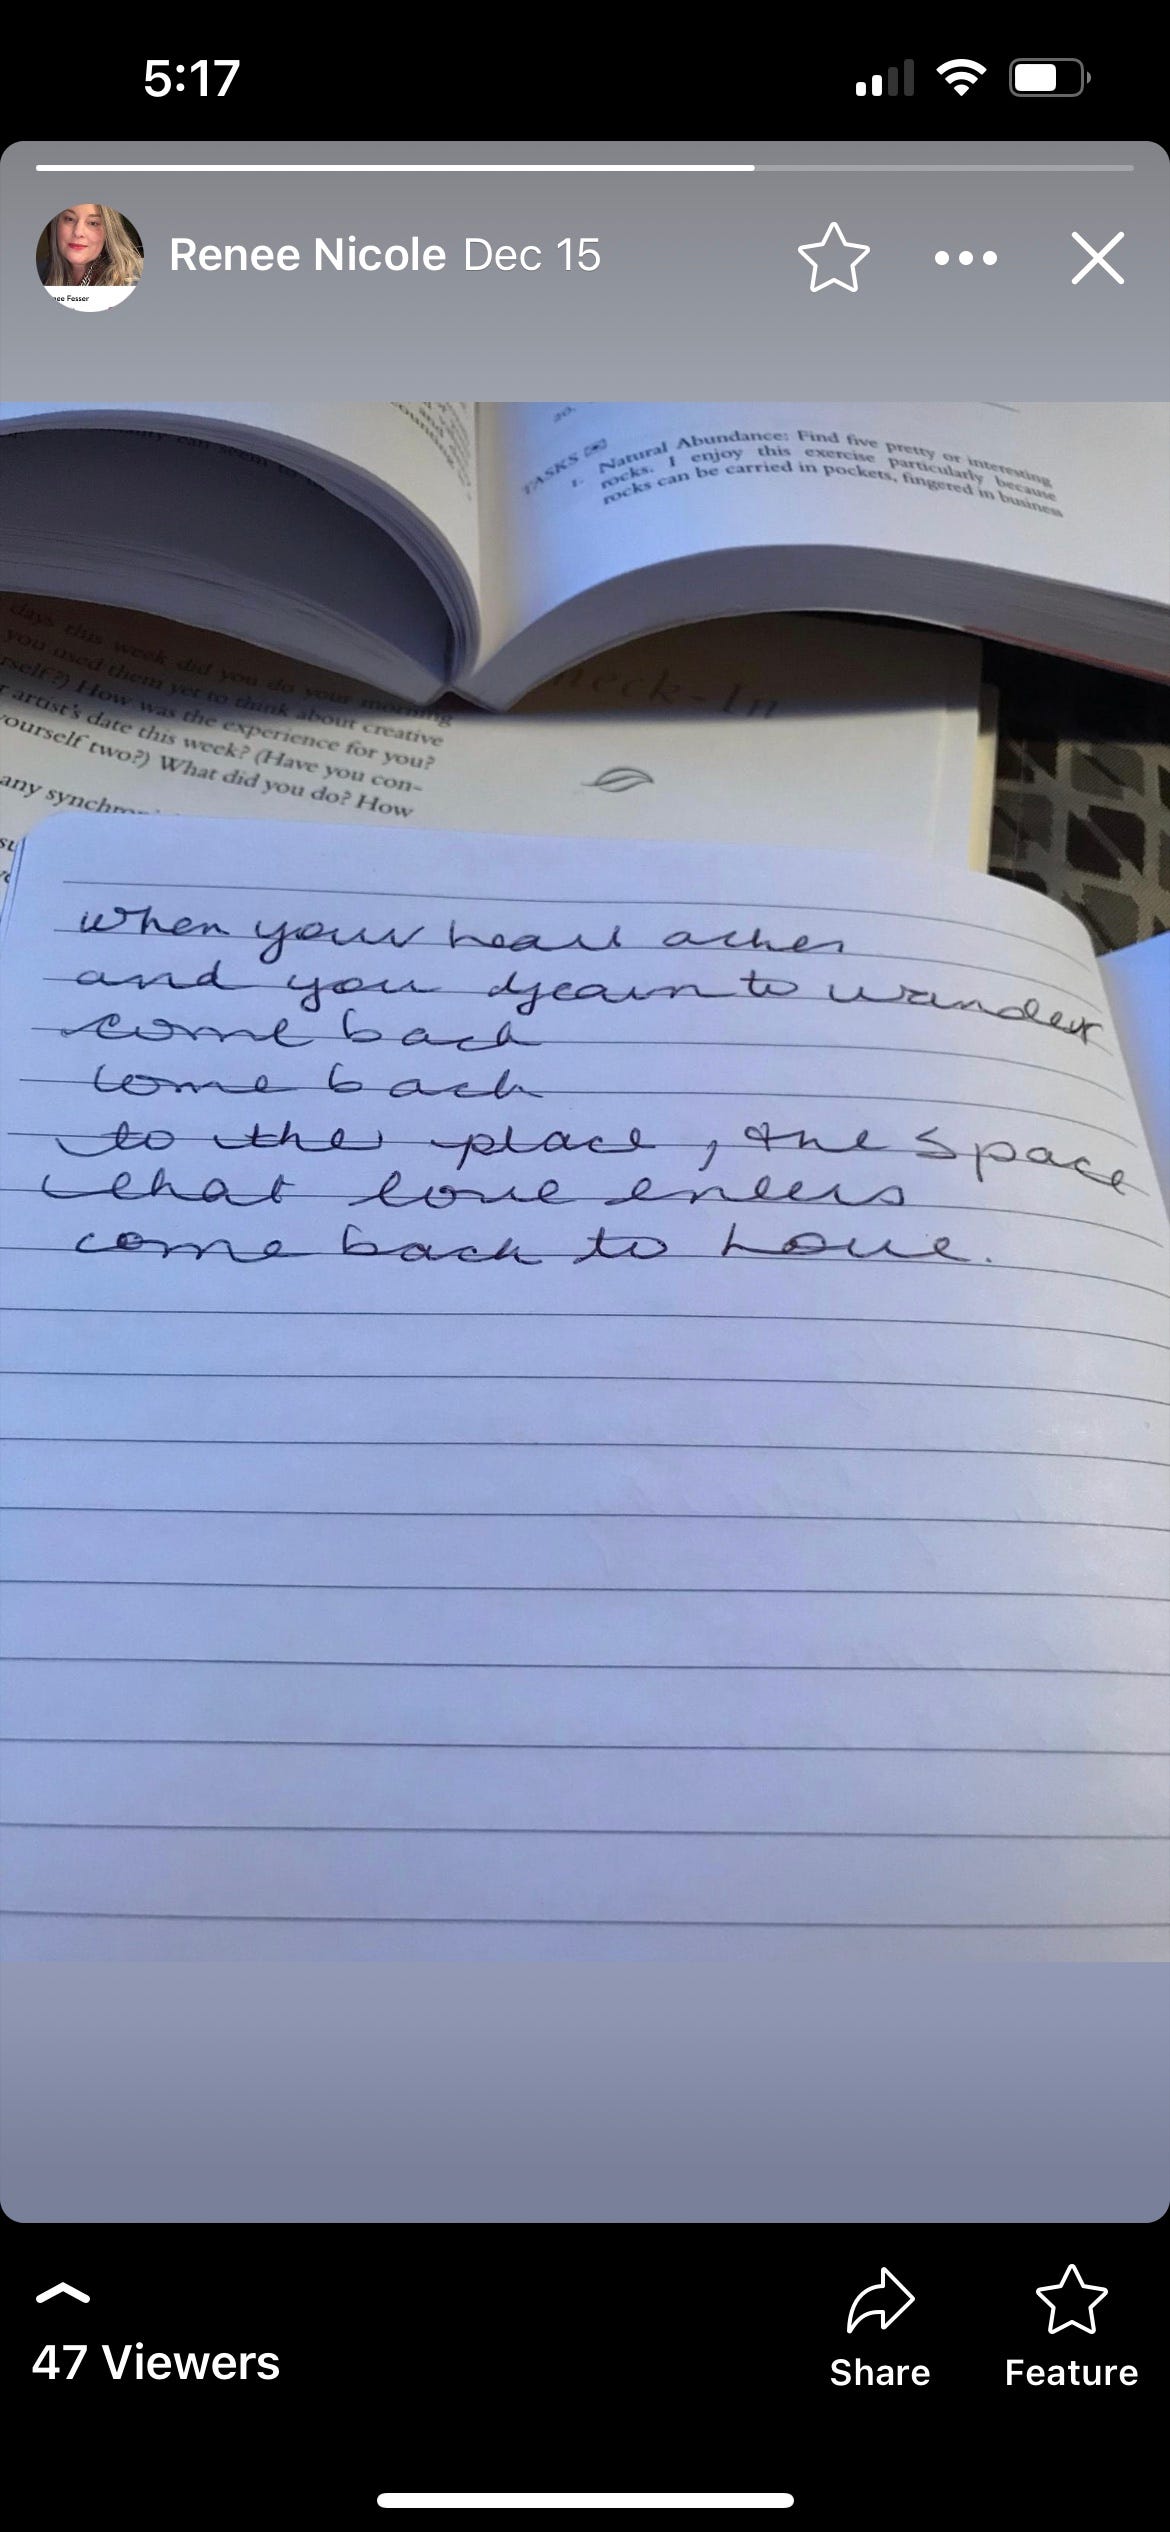 5:17
Renee Nicole Dec 15
ee Fesser
20.
TASKS
1. Natural Abundance: Find five pretty or interesting
rocks. I enjoy this exercise particularly because
rocks can be carried in pockets, fingered in business
days this week did you do your morning
you used them yet to think about creative
rself?) How was the experience for you?
r artist's date this week? (Have you con-
yourself two?) What did you do? How
any synchro
heck-In
when your heart aches
and you yearn to wander
come back
come back
to the place, the space
that love enters
come back to Love.
47 Viewers
Share
Feature